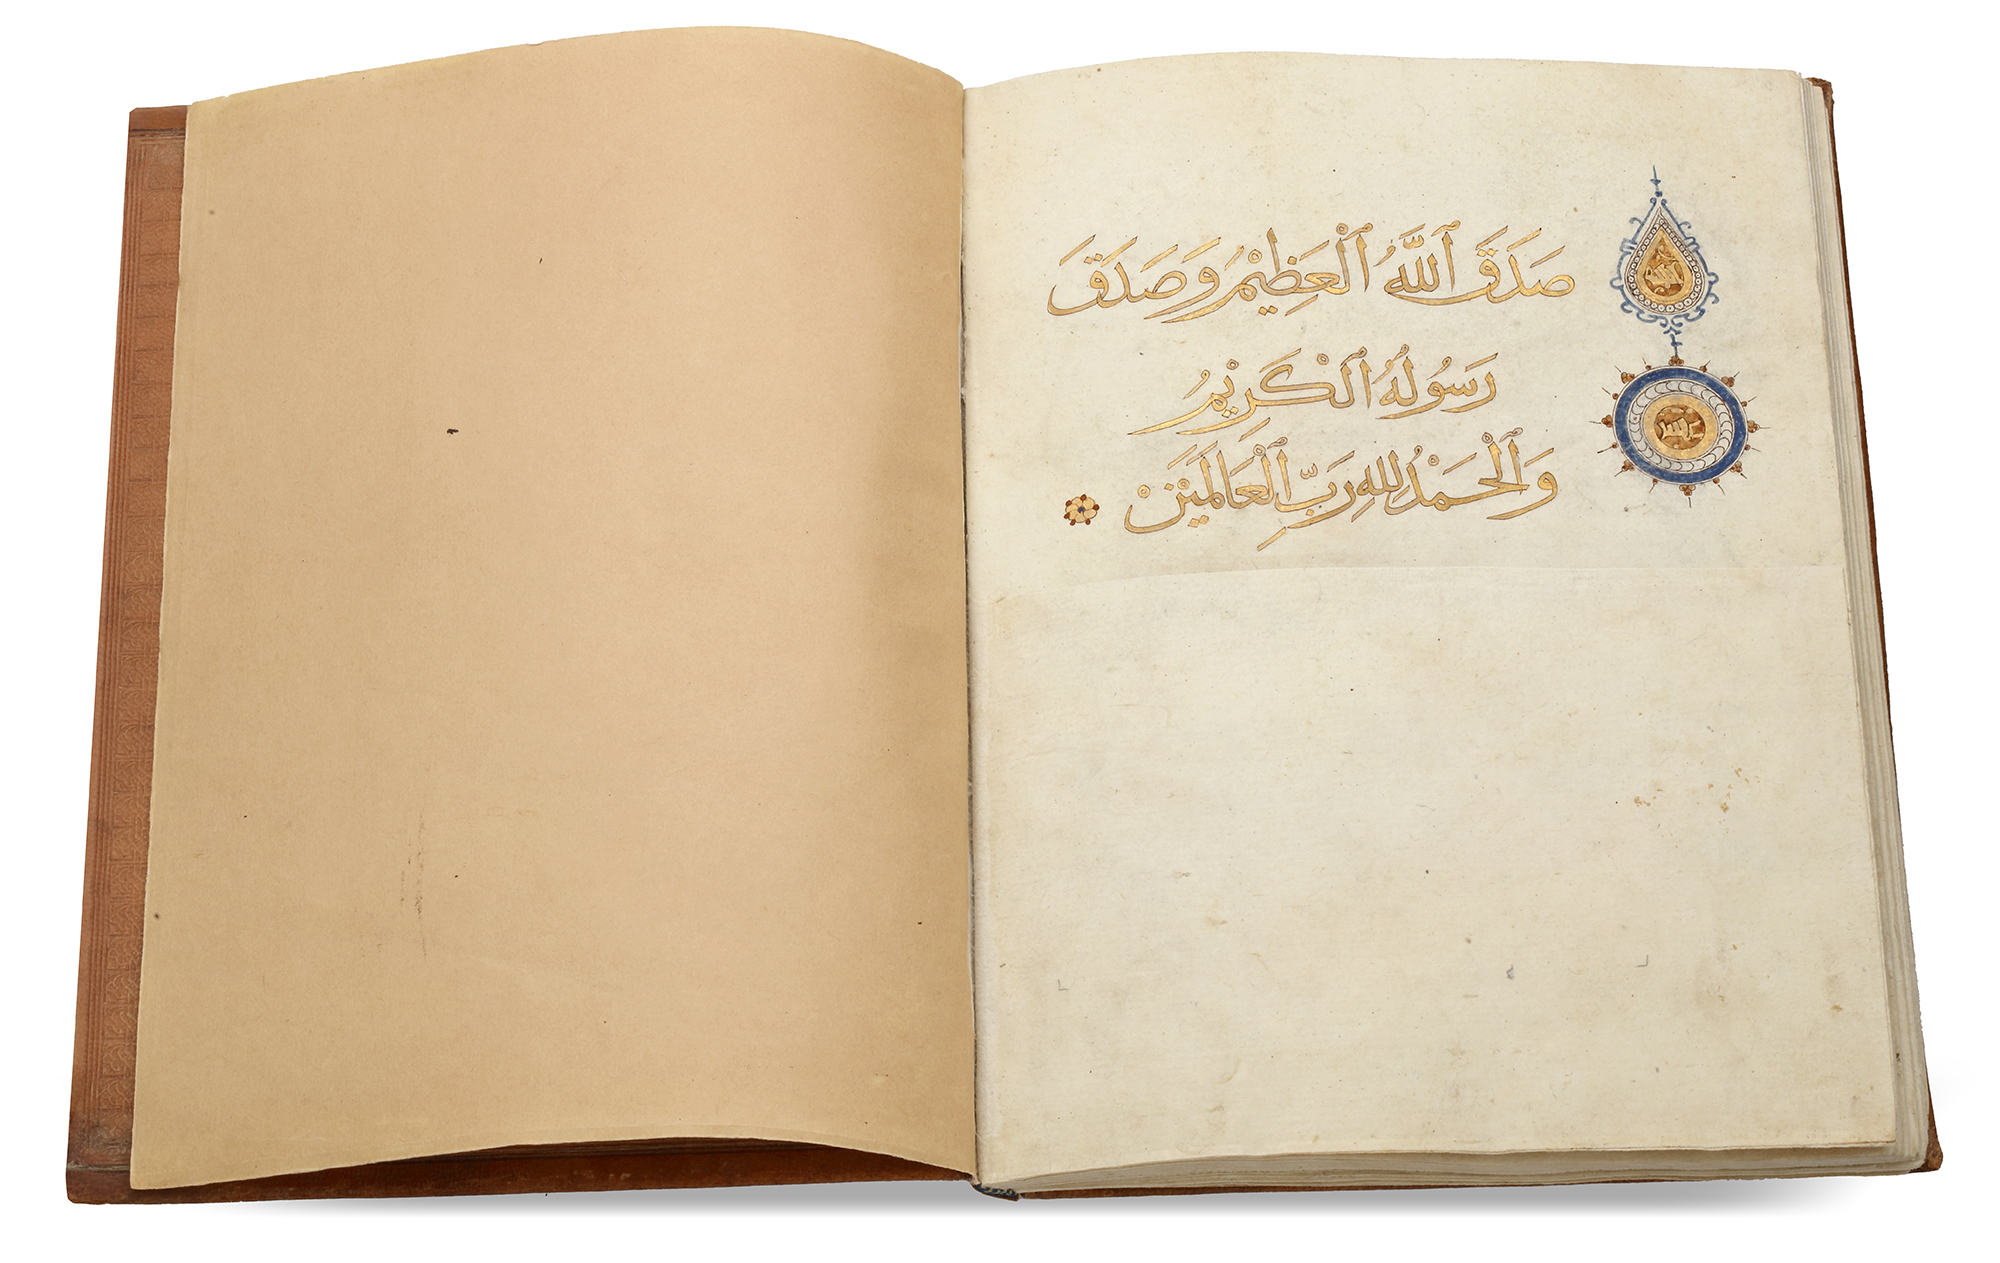 صَدَقَ ٱللَّهُ ٱلْعَظِيْمُ وَصَدَقَ
رَسُولُهُ ٱلْكَرِيْمُ
وَٱلْحَمْدُ لِلهِ رَبِّ ٱلْعَالَمَيِنْ